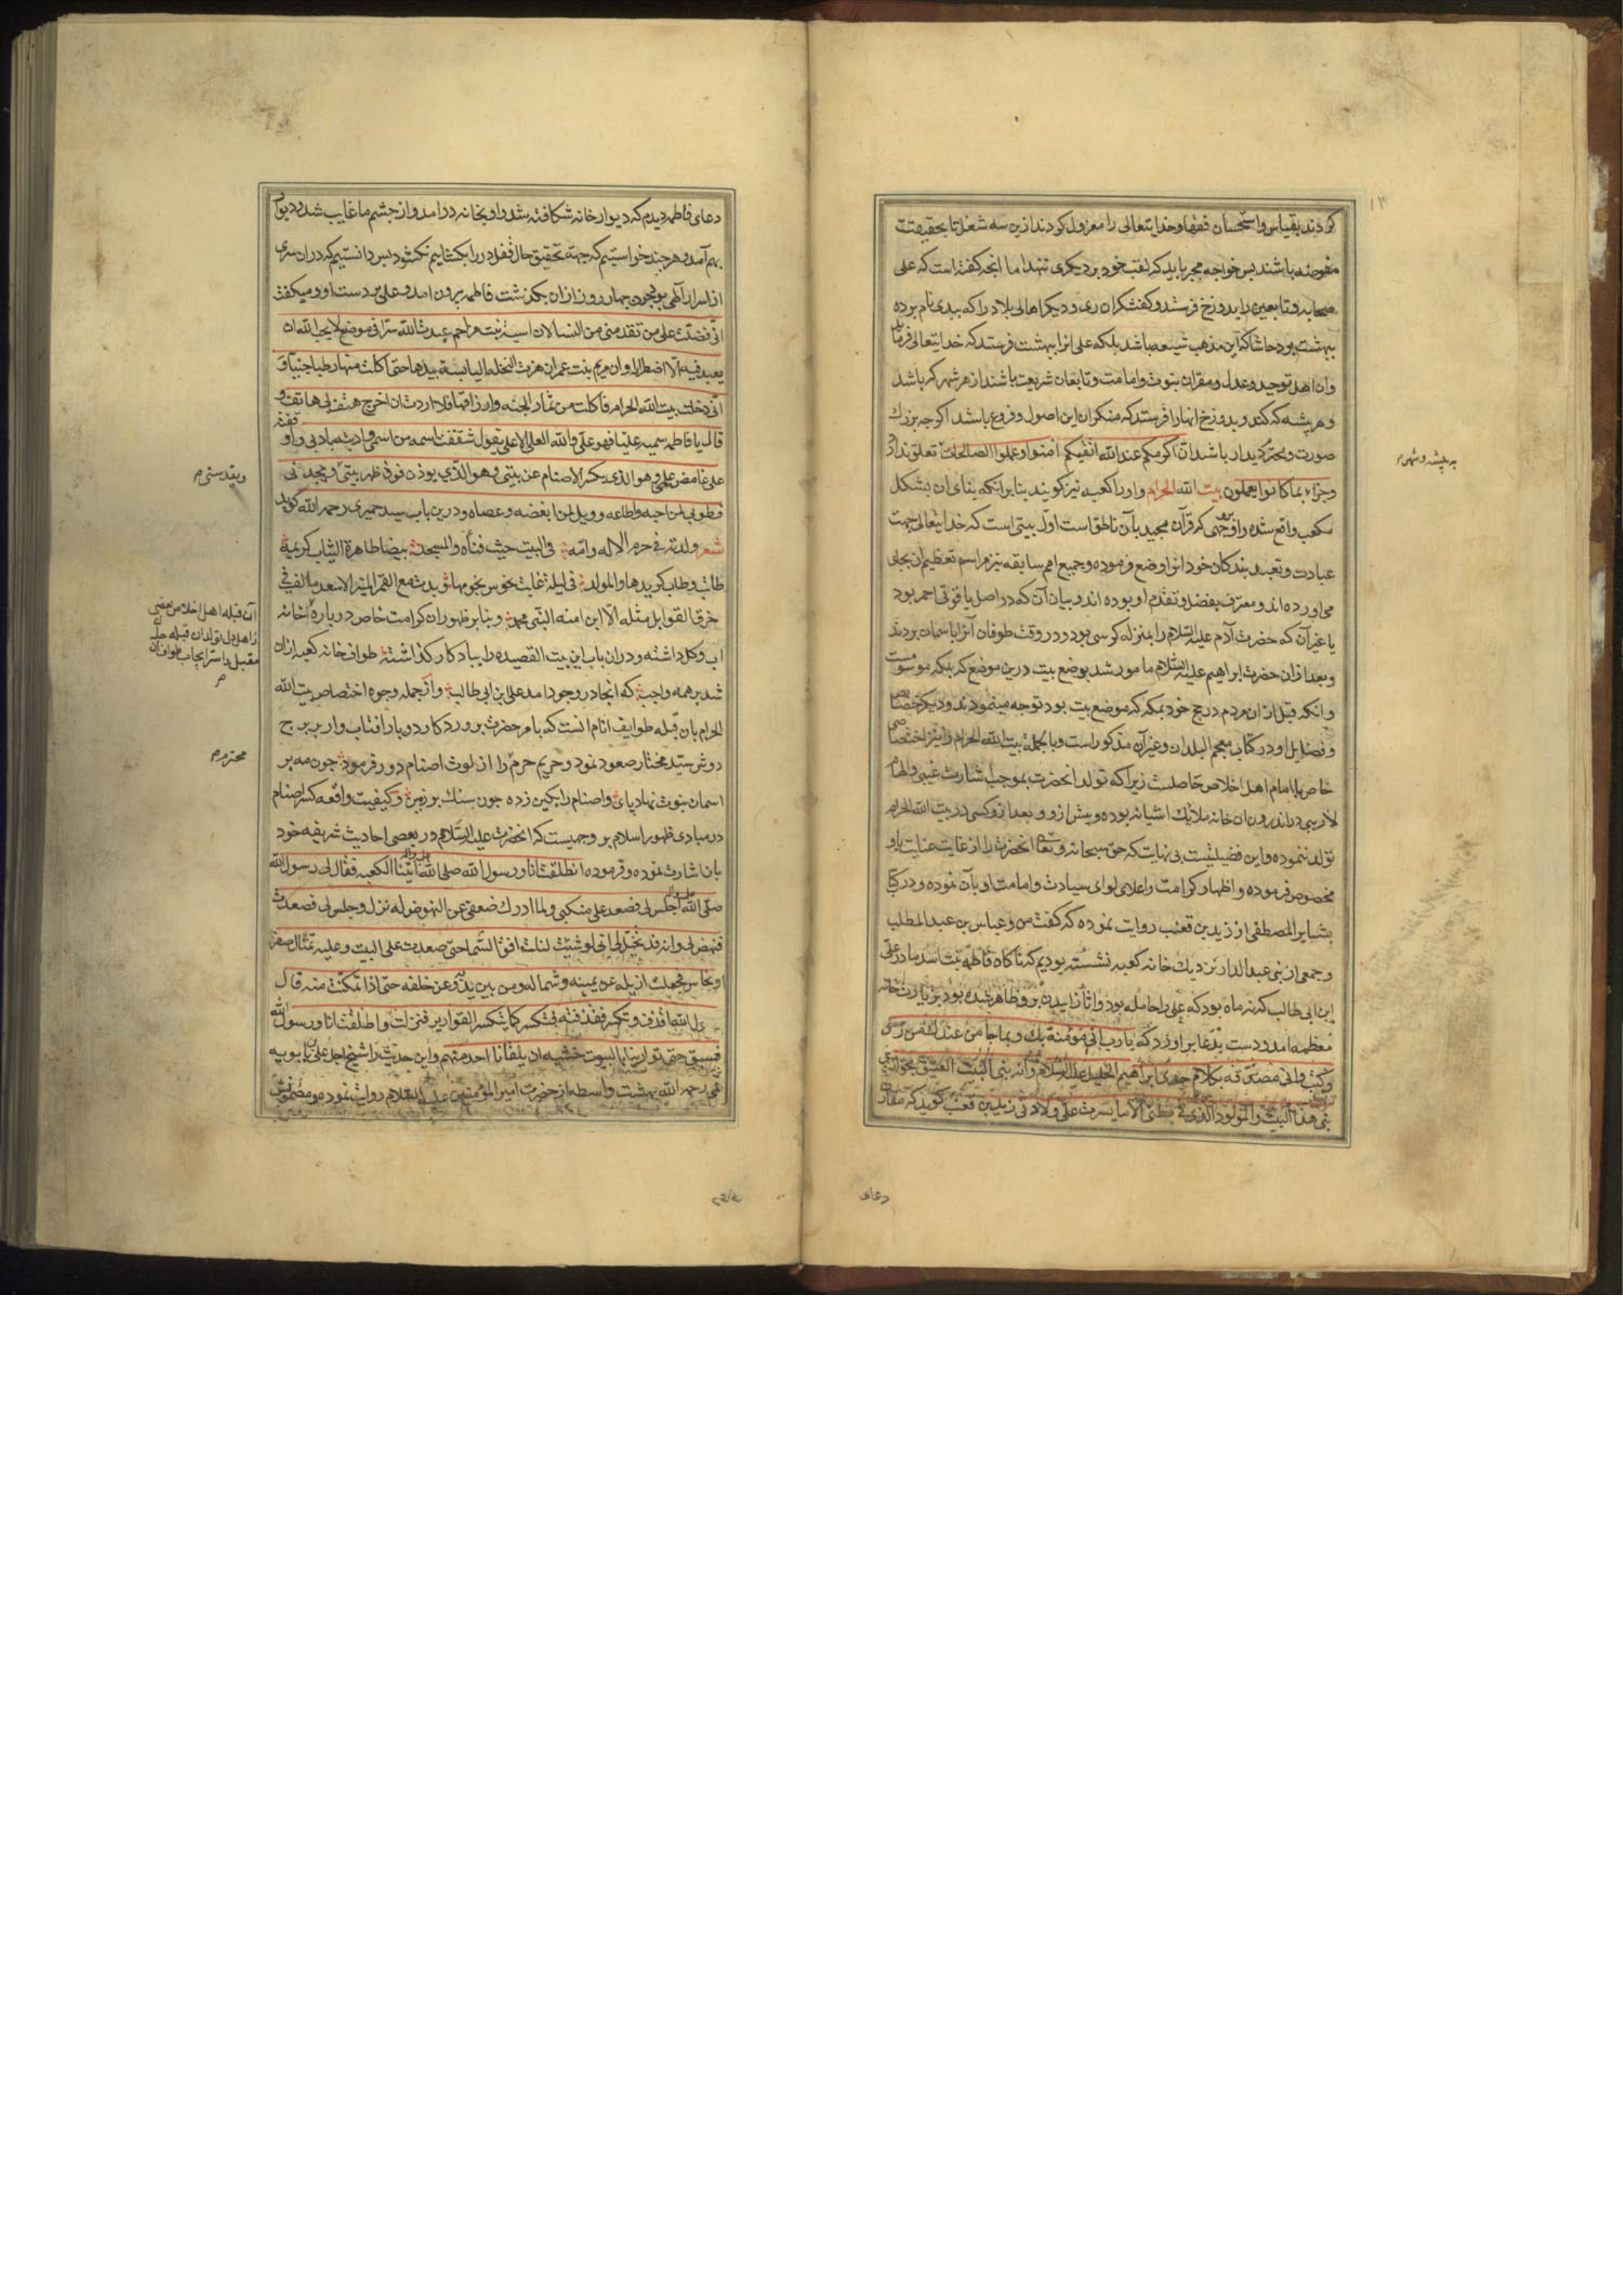 کردند بقیاس و استحسان فقها و خدایتعالی را معزول کردند ازین سه شغل تا بحقیقت
مفوضه باشند پس خواجه مجبر باید که لقب خود بر دیکری ننهد اما انچه کفته است که علی
صحابه و تابعین را بدوزخ فرستد و کفشکران ری و دیکر اهالی بلاد را که بیدی نام برده
ببهشت بود حاشا که این مذهب شیعه باشد بلکه علی انرا ببهشت فرستد که خدایتعالی فرماید
وان اهل توحید و عدل و مقران بنبوت و امامت و تابعان شریعت باشند از هر شهر که باشد
و هر پیشه که کند و بدوزخ انها را فرستد که منکران این اصول و فروع باشد اکرچه بزرك
صورت و محترم دیدار باشد ان اکرمکم عند الله اتقیکم امنوا و عملوا الصالحات تعلق ندارد
وجزاء بما کانوا یعملون بیت الله الحرام و اورا کعبه نیز کویند بنا برانکه بنای ان بشکل
مکعب واقع شده و او بوجهی که قرآن مجید بآن ناطق است اول بیتی است که خدایتعالی جهت
عبادت و تعبد بندکان خود انرا وضع فرموده و جمیع امم سابقه نیز مراسم تعظیم ان بجای
می اورده اند و معترف بفضل و تقدم او بوده اند و بیان آن که در اصل یاقوتی احمر بود
یا غیر آن که حضرت آدم علیه السلام را بمنزله کرسی بود و در وقت طوفان آنرا باسمان بردند
و بعد ازان حضرت ابراهیم علیه السلام مامور شد بوضع بیت درین موضع که ببکه موسوم است
و انکه قبل ازان مردم در حج خود بمکه که موضع بیت بود توجه مینمودند و دیکر خصایص
و فضایل او در کتاب معجم البلدان و غیر آن مذکور است و بالجملة بیت الله الحرام را نیز اختصاصی
خاص با امام اهل اخلاص حاصلست زیرا که تولد انحضرت بموجب اشارت غیبی و الهام
لاریبی در اندرون ان خانه ملایك اشیانه بوده و پیش ازو و بعد ازو کسی در بیت الله الحرام
تولد ننموده و این فضیلتیست بی نهایت که حق سبحانه و تعالی انحضرت را از غایت عنایت باو
مخصوص فرموده و اظهار کرامت و اعلای لوای سیادت و امامت او بآن نموده و در کتاب
بشایر المصطفی از زید بن قعنب روایت نموده که کفت من و عباس بن عبد المطلب
و جمعی از بنی عبد الدار نزدیك خانه کعبه نشسته بودیم که ناکاه فاطمه بنت اسد مادر علی
ابن ابی طالب که نه ماه بود که علی را حامله بود و اثار زاییدن برو ظاهر شده بود بزیارت خانه
معظمه امد و دست بدعا براورد که یا رب انی مؤمنة بك و بما جا من عندك من رسل
و کتب و انی مصدقة بکلام جدی ابراهیم الخلیل علیه السلام و انه بنی البیت العتیق بحق الذی
بنی هذا البیت و المولود الذی فی بطنی الا ما یسرت علی ولادتی زید بن قعنب کوید که مقارن
به پیشه و شهر
دعای
دعای فاطمه دیدم که دیوار خانه شکافته شد و او بخانه درامد و از چشم ما غایب شد و دیوار
بهم آمد و هرچند خواستیم که جهة تحقیق حال قفل در را بکشاییم نکشود پس دانستیم که دران سری
از اسرار آلهی بود چون چهار روز ازان بکذشت فاطمه بیرون امد و علی بر دست او و میکفت
انی فضلت علی من تقدمنی من النسا لان اسیة بنت مزاحم عبدت الله سرا فی موضع لا یحب الله ان
یعبد فیه الا اضطرارا و ان مریم بنت عمران هزت النخلة الیابسة بیدها حتی اکلت منها رطبا جنیا و
انی دخلت بیت الله الحرام فاکلت من ثمار الجنه و ارزاقها فلما اردت ان اخرج هتف لی هاتف و
قال یا فاطمه سمیه علیا فهو علی و الله العلی الاعلی یقول شققت اسمه من اسمی و ادبته بادبی و او
علی غامض علمی و هو الذی یکسر الاصنام عن بیتی و هو الذی یوذن فوق ظهر بیتی و یمجدنی
فطوبی لمن احبه و اطاعه و ویل لمن ابغضه و عصاه و درین باب سید حمیری رحمه الله کوید
شعر ولدته فی حرم الاله و امه فی البیت حیث فناه و المسجد بیضا طاهرة الثیاب کریمة
طابت و طاب کریدها و المولد فی لیلة غابت نحوس نجومها و بدت مع القمر المنیر الاسعد ما لف فی
خرق القوابل مثله الا ابن امنه النبی محمد و بنا بر ظهور ان کرامت خاص درباره انخانه
اب و کل داشته و دران باب این بیت القصیده را بیادکار کذاشته طواف خانه کعبه ازان
شد بر همه واجب که انجا در وجود امد علی بن ابی طالب و ازجمله وجوه اختصاص بیت الله
الحرام بان قبله طوایف انام انست که بامر حضرت پروردکار دو بار افتاب وار بر برج
دوش سید مختار صعود نمود و حریم حرم را از لوث اصنام دور فرمود چون مه بر
اسمان نبوت نهاد پای و اصنام را بکین زده چون سنك بر زمین و کیفیت واقعه کسر اصنام
در مبادی ظهور اسلام بر وجهیست که انحضرت علیه السلام در بعضی احادیث شریفه خود
بان اشارت نموده و فرموده انطلقت انا و رسول الله صلی الله علیه و اله اتینا الکعبه فقال لی رسول الله
صلی الله علیه و اله اجلس لی فصعد علی منکبی و لما ادرك ضعفی عن النهوض له نزل و جلس لی فصعدت
فنهض لی و انه قد یخیل الی انی لو شئت لنلت افق السما حتی صعدت علی البیت و علیه تمثال صفر
او نحاس فجعلت ازیله عن یمینه و شماله و من بین یدیه و عن خلفه حتی اذا تمکنت منه قال
رسول الله اقذف و تکسر فقذفته فتکسر کما یتکسر القواریر فنزلت و انطلقت انا و رسول الله
فسبق حتی توارینا بالبیوت خشیه ان یلقانا احد منهم و این حدیث را شیخ اجل علی بن بابویه
قمی رحمه الله بهشت واسطه از حضرت امیر المؤمنین علیه السلام روایت نموده و مضمون
و یقدسنی
آن قبله اهل اخلاص بعضی
از اهل دل تولد ان قبله
مقبل را سر ایجاب طواف ان
محترم